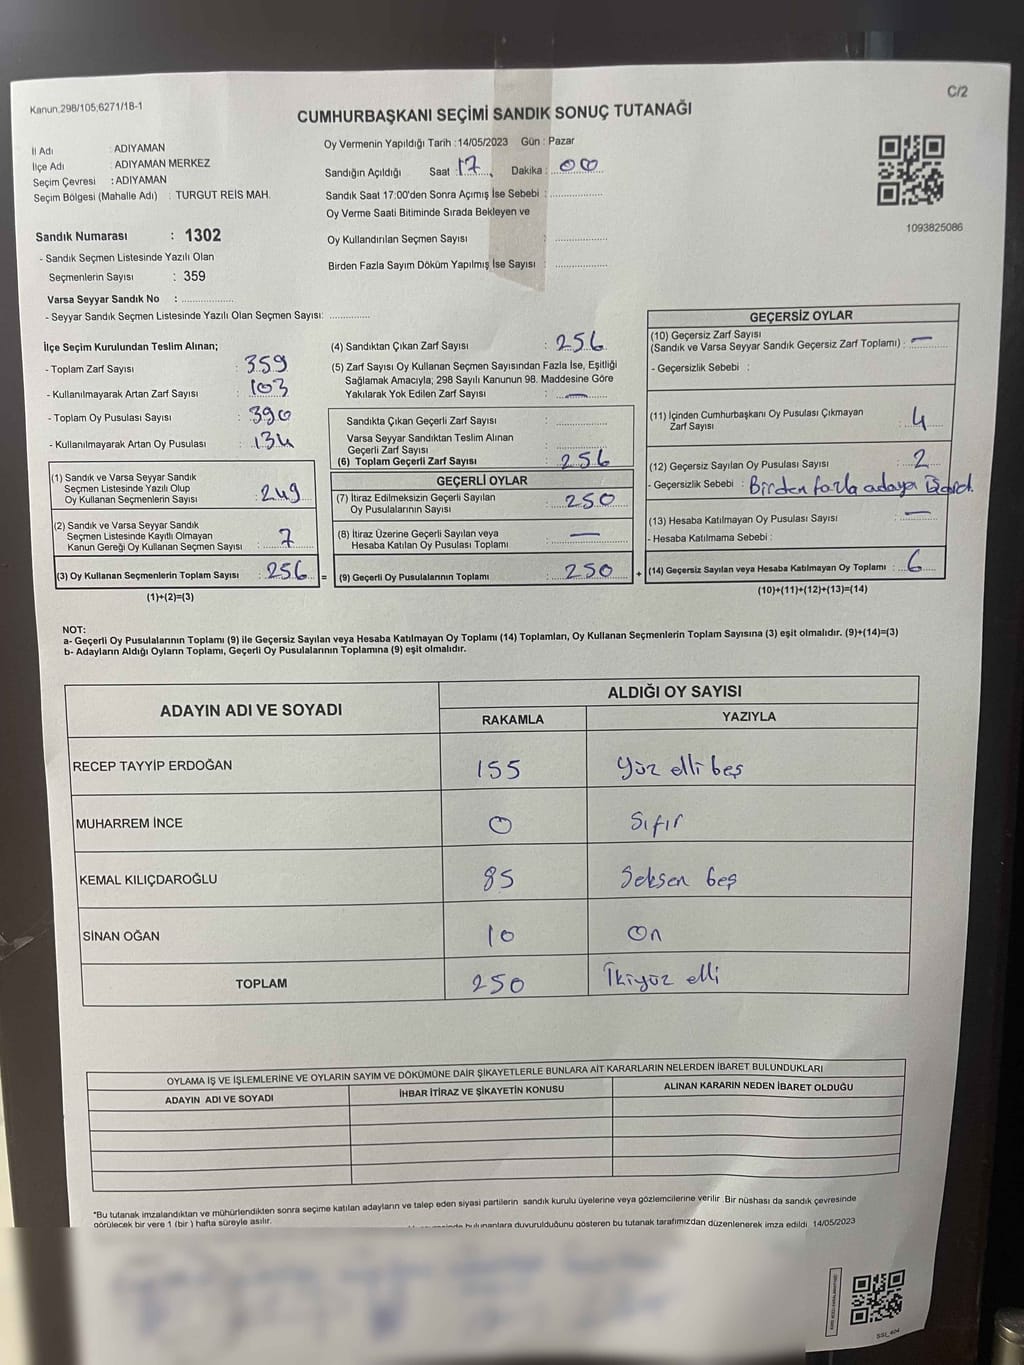 Kanun.298/105,6271/18-1
C/2
CUMHURBAŞKANI SEÇİMİ SANDIK SONUÇ TUTANAĞI
İl Adı : ADIYAMAN
İlçe Adı : ADIYAMAN MERKEZ
Seçim Çevresi : ADIYAMAN
Seçim Bölgesi (Mahalle Adı) : TURGUT REİS MAH.
Sandık Numarası : 1302
- Sandık Seçmen Listesinde Yazılı Olan
Seçmenlerin Sayısı : 359
Varsa Seyyar Sandık No : ....................
- Seyyar Sandık Seçmen Listesinde Yazılı Olan Seçmen Sayısı: ...............
Oy Vermenin Yapıldığı Tarih : 14/05/2023 Gün : Pazar
Sandığın Açıldığı Saat : 17 Dakika : 00
Sandık Saat 17:00'den Sonra Açımış İse Sebebi : ....................
Oy Verme Saati Bitiminde Sırada Bekleyen ve
Oy Kullandırılan Seçmen Sayısı : ....................
Birden Fazla Sayım Döküm Yapılmış İse Sayısı : ....................
1093825086
İlçe Seçim Kurulundan Teslim Alınan;
- Toplam Zarf Sayısı : 359
- Kullanılmayarak Artan Zarf Sayısı : 103
- Toplam Oy Pusulası Sayısı : 390
- Kullanılmayarak Artan Oy Pusulası : 134
(1) Sandık ve Varsa Seyyar Sandık
Seçmen Listesinde Yazılı Olup
Oy Kullanan Seçmenlerin Sayısı : 249
(2) Sandık ve Varsa Seyyar Sandık
Seçmen Listesinde Kayıtlı Olmayan
Kanun Gereği Oy Kullanan Seçmen Sayısı : 7
(3) Oy Kullanan Seçmenlerin Toplam Sayısı : 256 =
(1)+(2)=(3)
(4) Sandıktan Çıkan Zarf Sayısı : 256
(5) Zarf Sayısı Oy Kullanan Seçmen Sayısından Fazla İse, Eşitliği
Sağlamak Amacıyla; 298 Sayılı Kanunun 98. Maddesine Göre
Yakılarak Yok Edilen Zarf Sayısı : —
Sandıkta Çıkan Geçerli Zarf Sayısı : ....................
Varsa Seyyar Sandıktan Teslim Alınan
Geçerli Zarf Sayısı : ....................
(6) Toplam Geçerli Zarf Sayısı : 256
GEÇERLİ OYLAR
(7) İtiraz Edilmeksizin Geçerli Sayılan
Oy Pusulalarının Sayısı : 250
(8) İtiraz Üzerine Geçerli Sayılan veya
Hesaba Katılan Oy Pusulası Toplamı : —
(9) Geçerli Oy Pusulalarının Toplamı : 250 +
GEÇERSİZ OYLAR
(10) Geçersiz Zarf Sayısı
(Sandık ve Varsa Seyyar Sandık Geçersiz Zarf Toplamı) : —
- Geçersizlik Sebebi :
(11) İçinden Cumhurbaşkanı Oy Pusulası Çıkmayan
Zarf Sayısı : 4
(12) Geçersiz Sayılan Oy Pusulası Sayısı : 2
- Geçersizlik Sebebi : Birden fazla adaya işaret.
(13) Hesaba Katılmayan Oy Pusulası Sayısı : —
- Hesaba Katılmama Sebebi :
(14) Geçersiz Sayılan veya Hesaba Katılmayan Oy Toplamı : 6
(10)+(11)+(12)+(13)=(14)
NOT:
a- Geçerli Oy Pusulalarının Toplamı (9) ile Geçersiz Sayılan veya Hesaba Katılmayan Oy Toplamı (14) Toplamları, Oy Kullanan Seçmenlerin Toplam Sayısına (3) eşit olmalıdır. (9)+(14)=(3)
b- Adayların Aldığı Oyların Toplamı, Geçerli Oy Pusulalarının Toplamına (9) eşit olmalıdır.
ADAYIN ADI VE SOYADI
ALDIĞI OY SAYISI
RAKAMLA YAZIYLA
RECEP TAYYİP ERDOĞAN 155 Yüz elli beş
MUHARREM İNCE 0 Sıfır
KEMAL KILIÇDAROĞLU 85 Seksen beş
SİNAN OĞAN 10 On
TOPLAM 250 İkiyüz elli
OYLAMA İŞ VE İŞLEMLERİNE VE OYLARIN SAYIM VE DÖKÜMÜNE DAİR ŞİKAYETLERLE BUNLARA AİT KARARLARIN NELERDEN İBARET BULUNDUKLARI
ADAYIN ADI VE SOYADI İHBAR İTİRAZ VE ŞİKAYETİN KONUSU ALINAN KARARIN NEDEN İBARET OLDUĞU
*Bu tutanak imzalandıktan ve mühürlendikten sonra seçime katılan adayların ve talep eden siyasi partilerin sandık kurulu üyelerine veya gözlemcilerine verilir. Bir nüshası da sandık çevresinde
görülecek bir yere 1 (bir) hafta süreyle asılır.
bulunanlara duyurulduğunu gösteren bu tutanak tarafımızdan düzenlenerek imza edildi. 14/05/2023